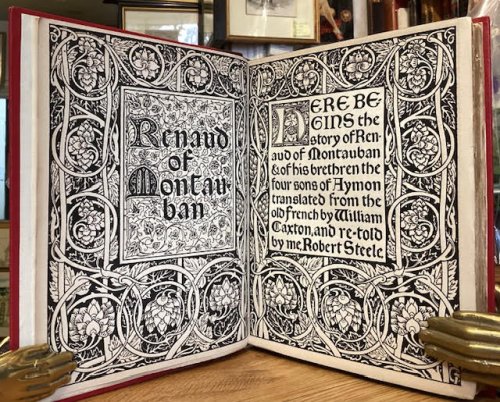 Renaud
of
Montau-
ban
HERE BE
GINS the
story of Ren
aud of Montauban
& of his brethren the
four sons of Aymon
translated from the
old French by William
Caxton, and re-told
by me, Robert Steele